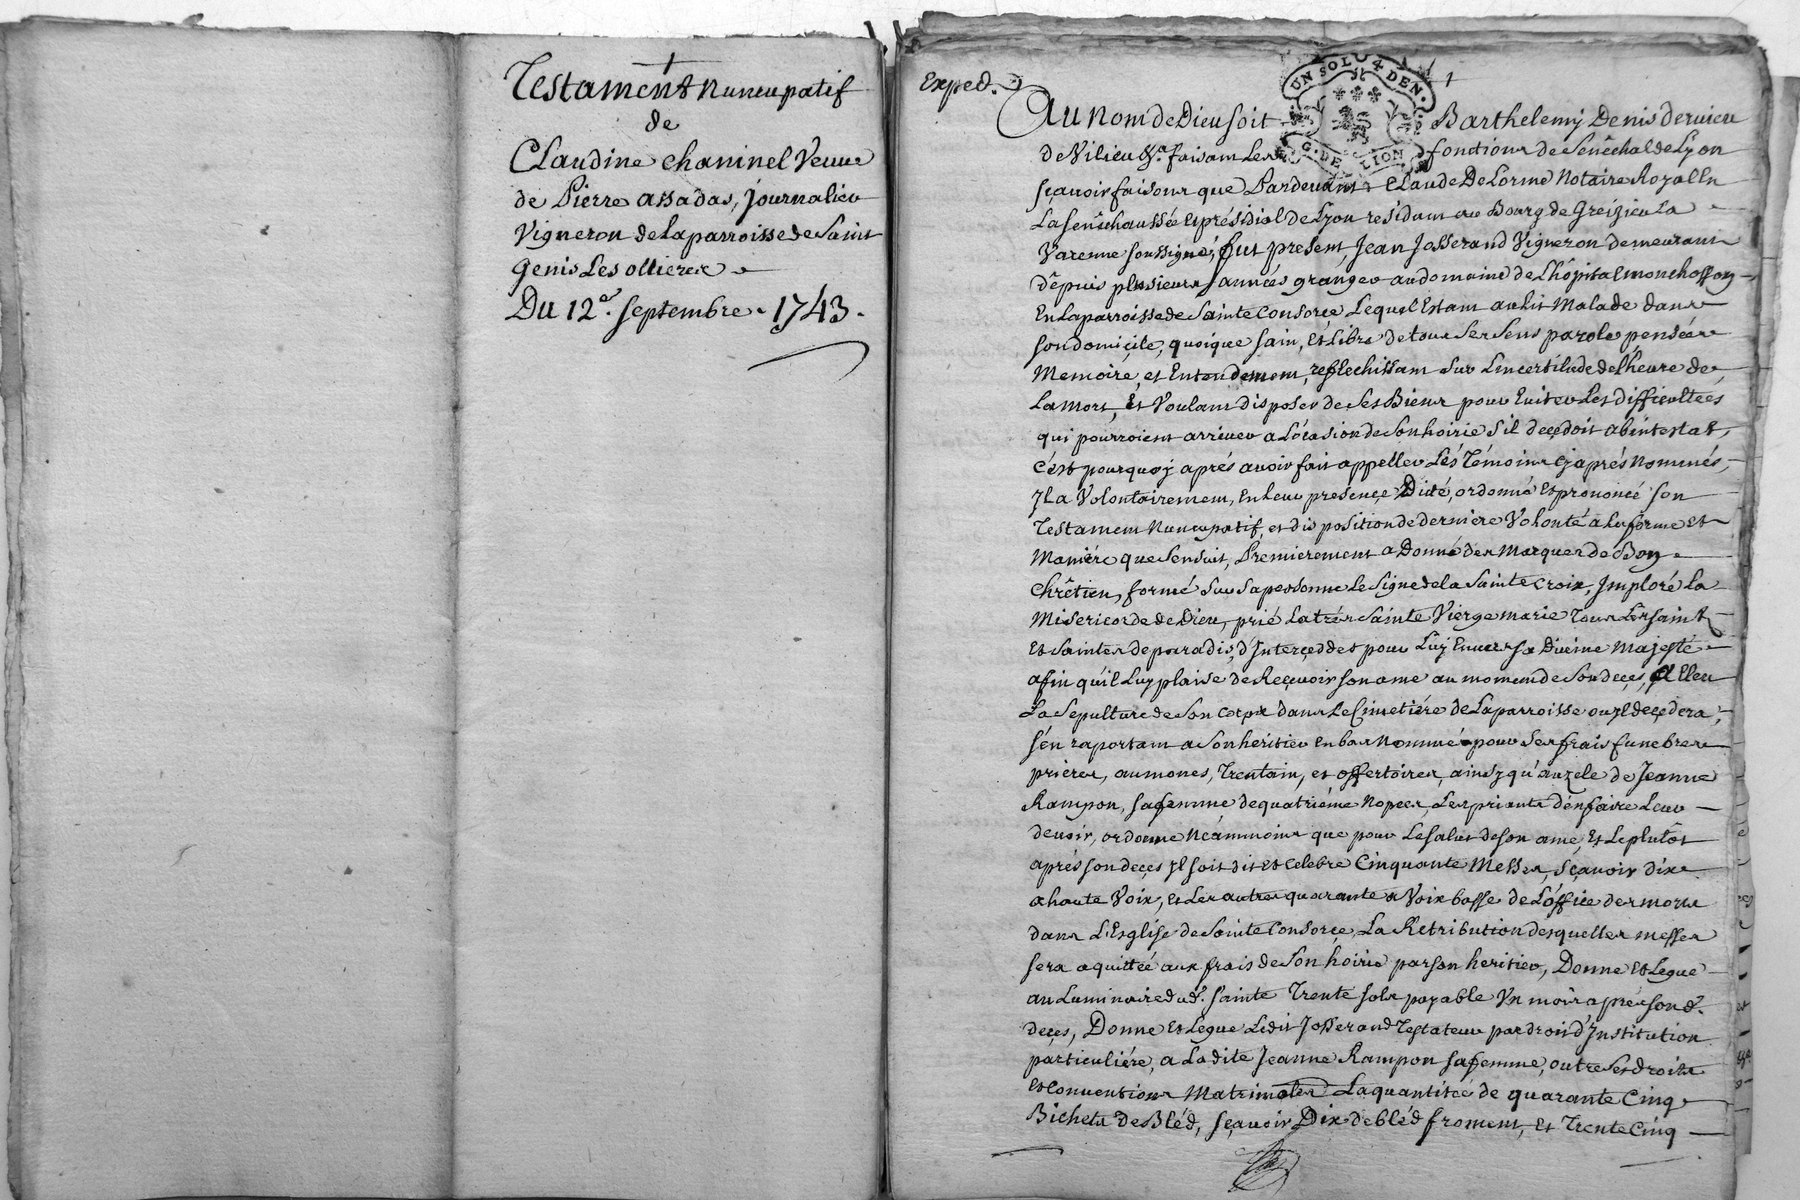 Testament Nuncupatif
de
Claudine chaninel Veuve
de Pierre assadas, Journalier
Vigneron de la parroisse de Saint
Genis Les ollieres
Du 12e. septembre 1743.
Exped.
UN SOL 4 DEN.
G. DE LION
1
Au nom de Dieu soit Barthelemy Denis dervieu
de Vilieu &a. faisant Les fonctions de Senêchal de Lyon
sçavoir faisons que Pardevant Claude DeLorme Notaire Royal En
La senêchaussée et présidial de Lyon residant au Bourg de Greizieu La
Varenne soussigné, fut present, Jean Josserand Vigneron demeurant
dêpuis plusieurs années granger au domaine de L'hôpital monchosson
En La parroisse de Sainte Consorce Lequel Estant au lit Malade dans
son domicile, quoique sain, et Libre de tous ses sens parole, pensée
Memoire, et Entendement, reflechissant sur L'incertitude de L'heure de
La mort, Et Voulant disposer de ses Biens pour Eviter Les difficultées
qui pourroient arriver a L'ocasion de son hoirie s'il deçedoit abintestat,
C'est pourquoy aprés avoir fait appeller Lés Témoins cy aprés Nommés,
Il a Volontairement, en Leur presençe Dicté, ordonné et prononcé son
Testament Nuncupatif, et disposition de derniere Volonté a la forme et
Maniére que s'ensuit, Premierement a Donné des Marques de Bon
Chrêtien, formé sur sa personne Le signe de la Sainte Croix, Imploré La
Misericorde de Dieu, prié La trés Sainte Vierge marie Tous Les saints
et Saintes de paradis, d'Interçedder pour Luy Envers sa Divine Majesté
afin qu'il Luy plaise de Reçevoir son ame au moment de son deçes, a Eleu
La Sepulture de son corps dans Le Cimetiére de La parroisse ou il deçedera,
s'en raportant a son heritier en bas Nommé pour ses frais funebres
prieres, aumones, Trentain, et offertoires, ainsy qu'au zele de Jeanne
Rampon, sa femme de quatriéme Nopces, Les priants d'en faire Leur
devoir, ordonne Néammoins que pour Le salut de son ame, Et Le plutôt
aprés son deçes Il soit dit et Celebré Cinquante Messes, sçavoir dix
a haute Voix, et Les autres quarante a Voix basse de L'office des morts
dans L'Esglise de Sainte Consorce, La Retribution desquelles messes
sera aquittée aux frais de son hoirie par son heritier, Donne et Legue
au Luminaire dud. sainte Trente sols payable Un mois aprés sond.
deçes, Donne et Legue Ledit Josserand Testateur par droit d'Institution
particuliére, a Ladite Jeanne Rampon sa femme, outre ses droits
et Conventions Matrimoles La quantitée de quarante Cinq
Bichets De Bléd, sçavoir Dix de bléd froment, et Trente Cinq